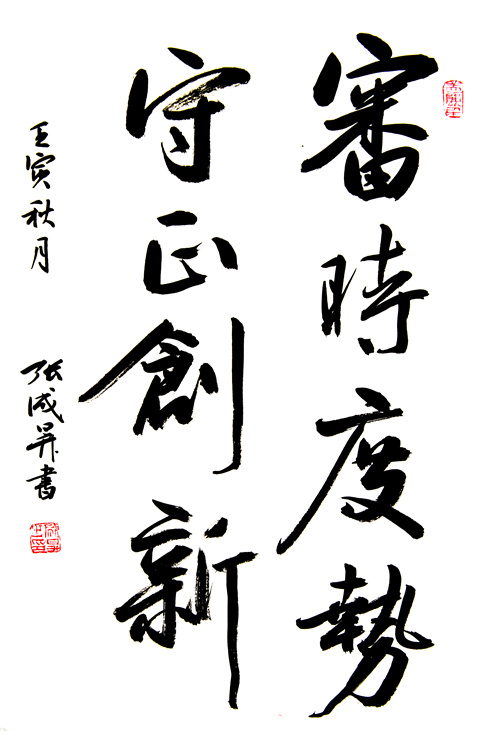 審時度勢
守正創新
壬寅秋月
張成昇書